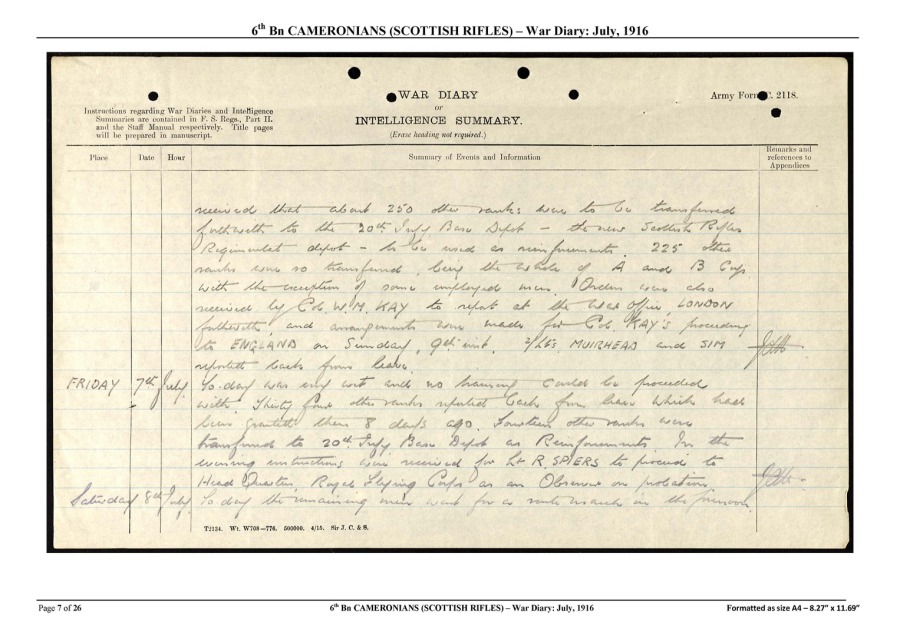 6th Bn CAMERONIANS (SCOTTISH RIFLES) – War Diary: July, 1916
WAR DIARY
or
INTELLIGENCE SUMMARY.
(Erase heading not required.)
Army Form C. 2118.
Instructions regarding War Diaries and Intelligence
Summaries are contained in F. S. Regs., Part II.
and the Staff Manual respectively. Title pages
will be prepared in manuscript.
Place Date Hour Summary of Events and Information Remarks and references to Appendices
received that about 250 other ranks were to be transferred
forthwith to the 20th Infy Base Depot – the new Scottish Rifles
Regimental depot – to be used as reinforcements. 225 other
ranks were so transferred, being the whole of A and B Coys
with the exception of some employed men. Orders were also
received by Col. W.M. KAY to report at the War Office, LONDON
forthwith, and arrangements were made for Col. KAY's proceeding
to ENGLAND on Sunday, 9th inst. 2/Lts. MUIRHEAD and SIM
reported back from leave.
FRIDAY 7th July. To-day was very wet and no training could be proceeded
with. Thirty four other ranks reported back from leave which had
been granted them 8 days ago. Fourteen other ranks were
transferred to 20th Infy Base Depot as Reinforcements. In the
evening instructions were received for Lt R. SPIERS to proceed to
Head Quarters, Royal Flying Corps as an Observer on probation.
Saturday 8th July To day the remaining men went for a route march in the forenoon.
T2134. Wt. W708—776. 500000. 4/15. Sir J. C. & S.
Page 7 of 26 6th Bn CAMERONIANS (SCOTTISH RIFLES) – War Diary: July, 1916 Formatted as size A4 – 8.27" x 11.69"